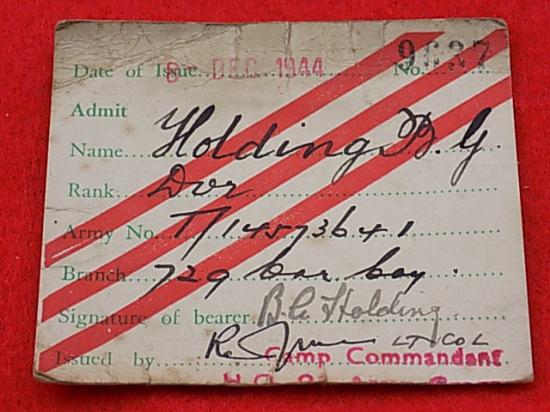 Date of Issue 8- DEC 1944 No. 9637
Admit
Name Holding B. G
Rank Dvr
Army No. T/14573641
Branch 729 Car Coy.
Signature of bearer B.G Holding
Issued by R. LT COL
Camp Commandant